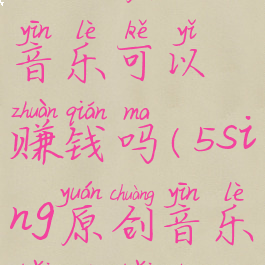 yīn lè kě yǐ
音乐可以
zhuàn qián ma
赚钱吗(5si
yuán chuàng yīn lè
ng原创音乐